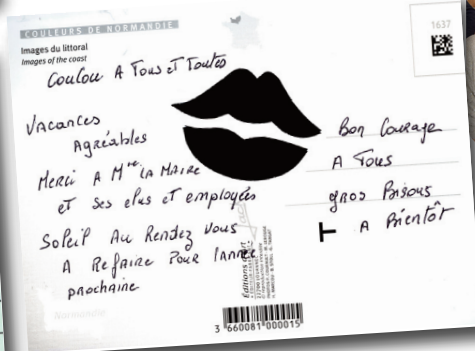 COULEURS DE NORMANDIE
Images du littoral
Images of the coast
1637
Coucou A Tous et Toutes
Vacances
Agréables
Merci A Mme LA MAIRE
et ses elus et employées
Soleil Au Rendez Vous
A Refaire Pour l'année
prochaine
Bon Courage
A Tous
gros Bisous
T A Bientôt
Normandie
3 660081 000015